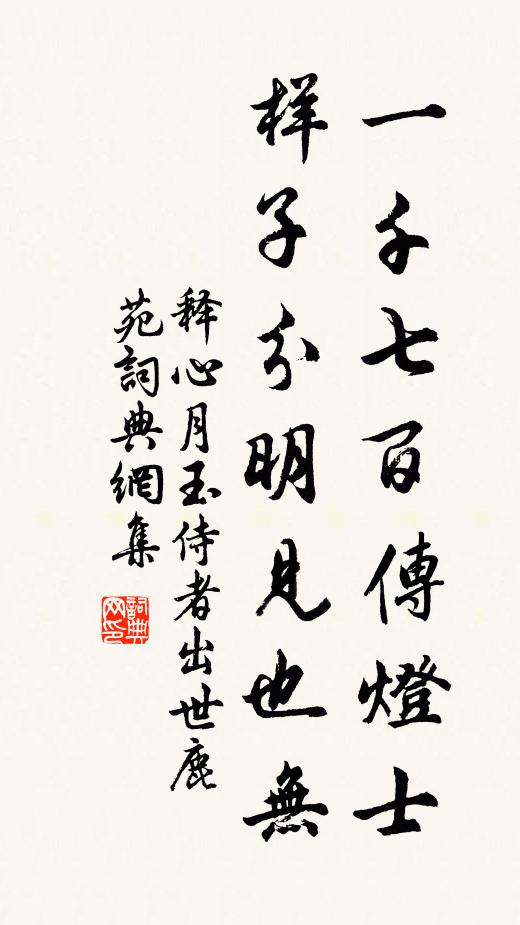 一千七百傳燈士
样子分明見也無
释心月玉侍者出世鹿
苑詞典網集
詞典网印